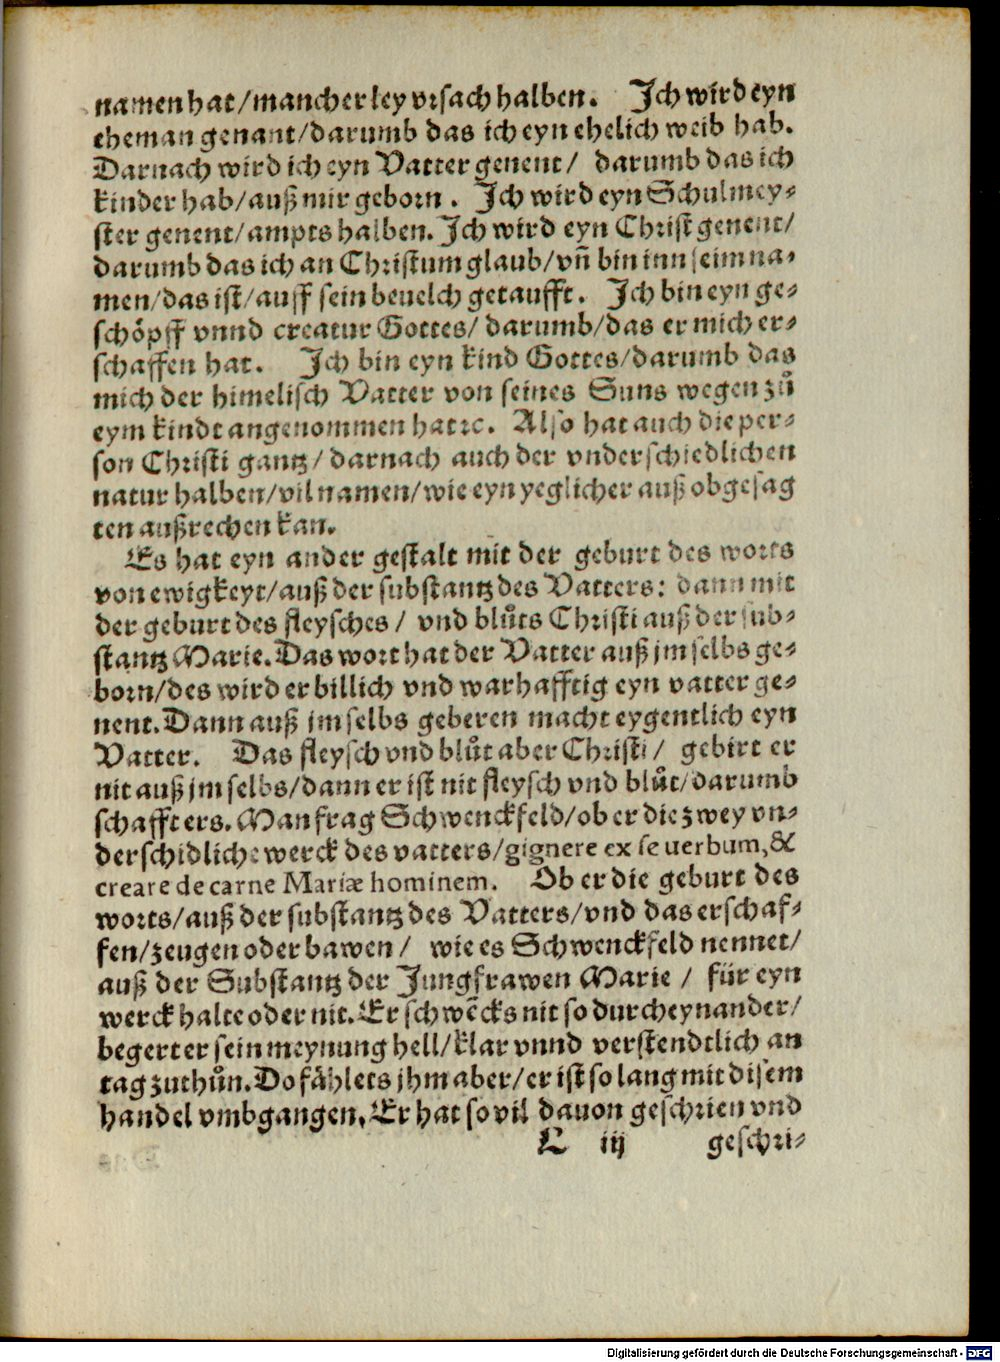 namen hat/mancherley vrsach halben. Jch wird eyn
eheman genant/darumb das ich eyn ehelich weib hab.
Darnach wird ich eyn Vatter genent/ darumb das ich
kinder hab/auß mir geborn. Jch wird eyn Schulmey⸗
ster genent/ampts halben. Jch wird eyn Christ genent/
darumb das ich an Christum glaub/vñ bin inn seim na⸗
men/das ist/auff sein beuelch getaufft. Jch bin eyn ge⸗
schöpff vnnd creatur Gottes/ darumb/das er mich er⸗
schaffen hat. Jch bin eyn kind Gottes/darumb das
mich der himelisch Vatter von seines Suns wegen zů
eym kindt angenommen hat ꝛc. Also hat auch die per⸗
son Christi gantz/darnach auch der vnderschiedlichen
natur halben/vil namen/wie eyn yeglicher auß obgesag
ten außrechen kan.
Es hat eyn ander gestalt mit der geburt des worts
von ewigkeyt/auß der substantz des Vatters: dann mit
der geburt des fleysches/ vnd blůts Christi auß der sub⸗
stantz Marie. Das wort hat der Vatter auß jm selbs ge⸗
born/des wird er billich vnd warhafftig eyn vatter ge⸗
nent. Dann auß jm selbs geberen macht eygentlich eyn
Vatter. Das fleysch vnd blůt aber Christi/ gebirt er
nit auß jm selbs/dann er ist nit fleysch vnd blůt/darumb
schafft ers. Man frag Schwenckfeld/ob er die zwey vn⸗
derschidliche werck des vatters/gignere ex se uerbum, &
creare de carne Mariæ hominem. Ob er die geburt des
worts/auß der substantz des Vatters/vnd das erschaf⸗
fen/zeugen oder bawen/ wie es Schwenckfeld nennet/
auß der Substantz der Jungfrawen Marie/ für eyn
werck halte oder nit. Er schwẽcks nit so durcheynander/
begert er sein meynung hell/klar vnnd verstendtlich an
tag zuthůn. Do fählets jhm aber/er ist so lang mit disem
handel vmbgangen, Er hat so vil dauon geschrien vnd
L iij geschri⸗
Digitalisierung gefördert durch die Deutsche Forschungsgemeinschaft - DFG